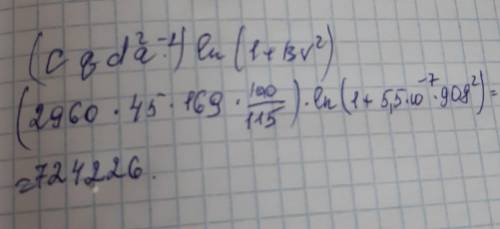 (C q d² a⁻¹) ln (1+Bv²)
(2960 · 45 · 169 · 100/115) · ln (1 + 5,5 · 10⁻⁷ · 908²) =
= 724226.